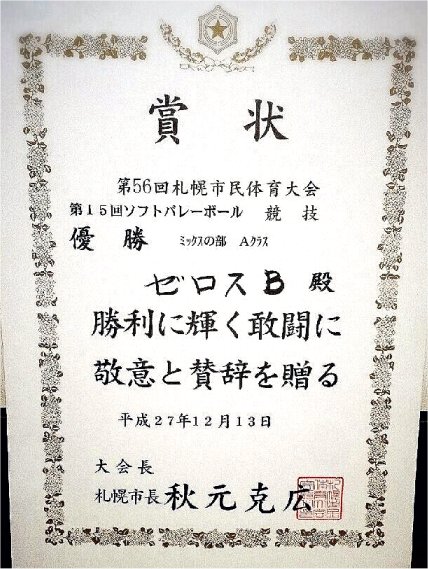 賞状
第56回札幌市民体育大会
第15回ソフトバレーボール 競技
優勝 ミックスの部 Aクラス
ゼロスB 殿
勝利に輝く敢闘に
敬意と賛辞を贈る
平成27年12月13日
大会長
札幌市長 秋元克広